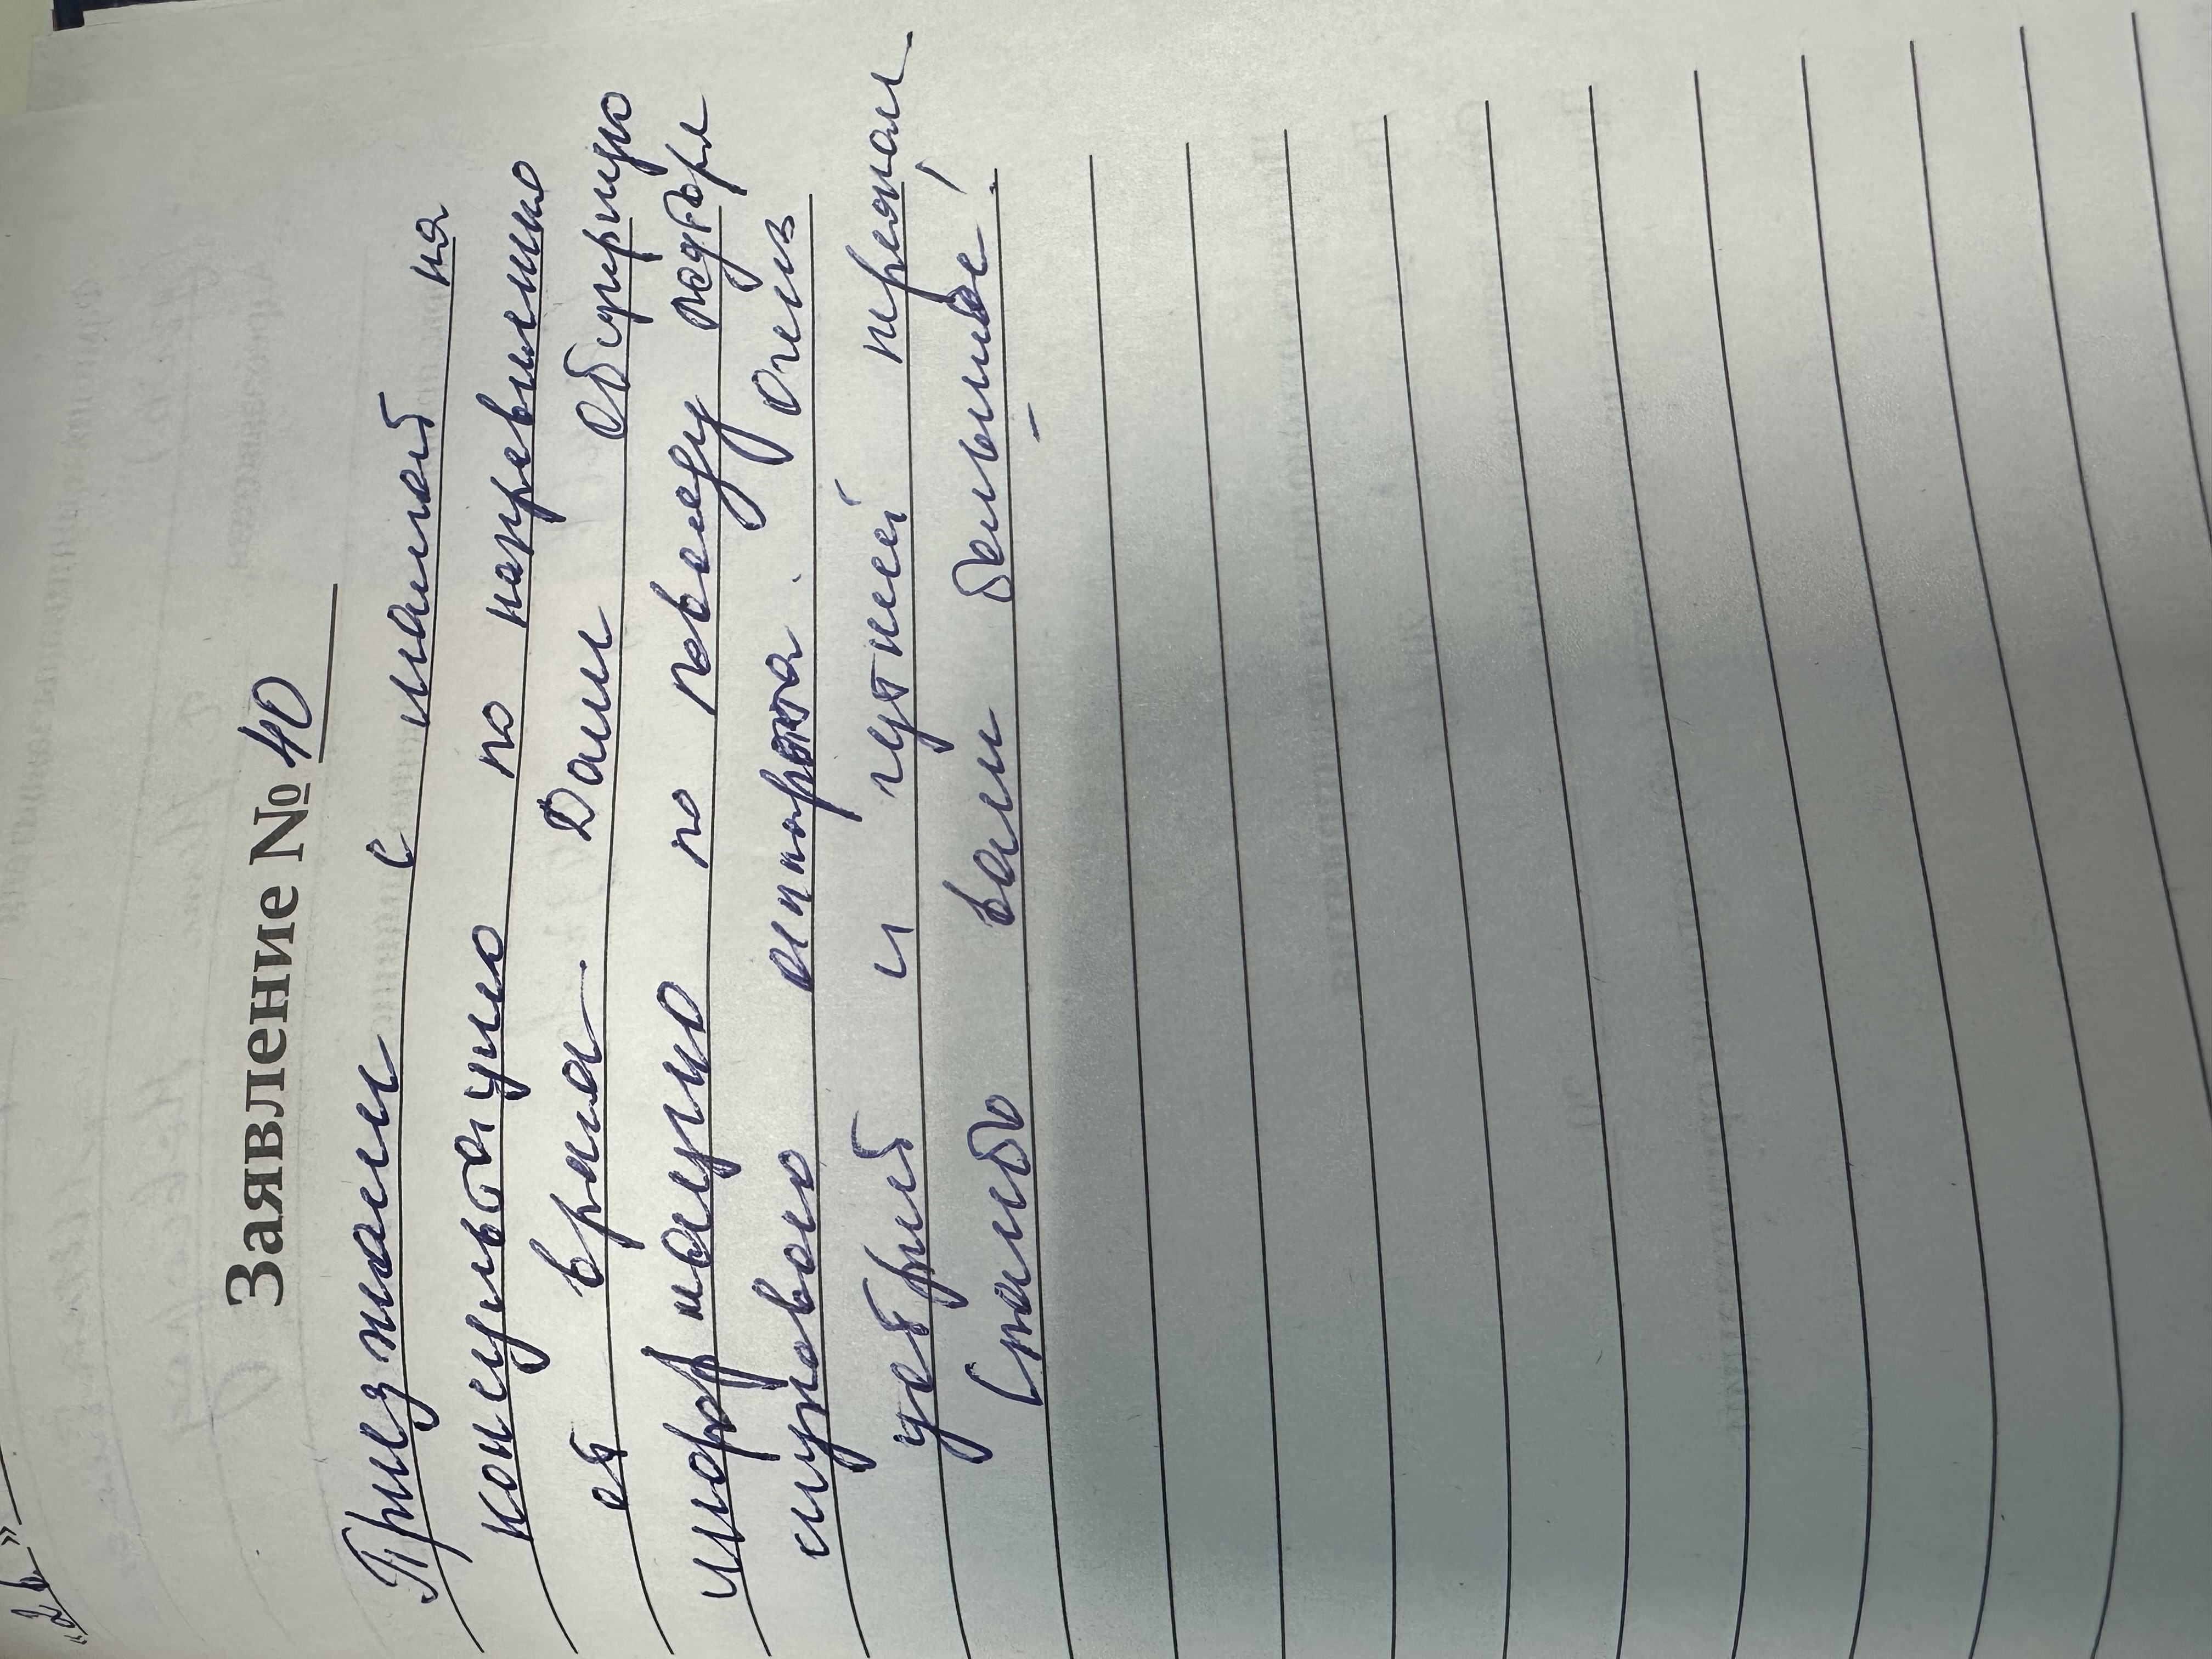 «26»
Заявление № 40
Приезжали с мамой на
консультацию по направлению
от врача. Дали обширную
информацию по поводу подбора
слухового аппарата. Очень
добрый и чуткий персонал
Спасибо вам большое!